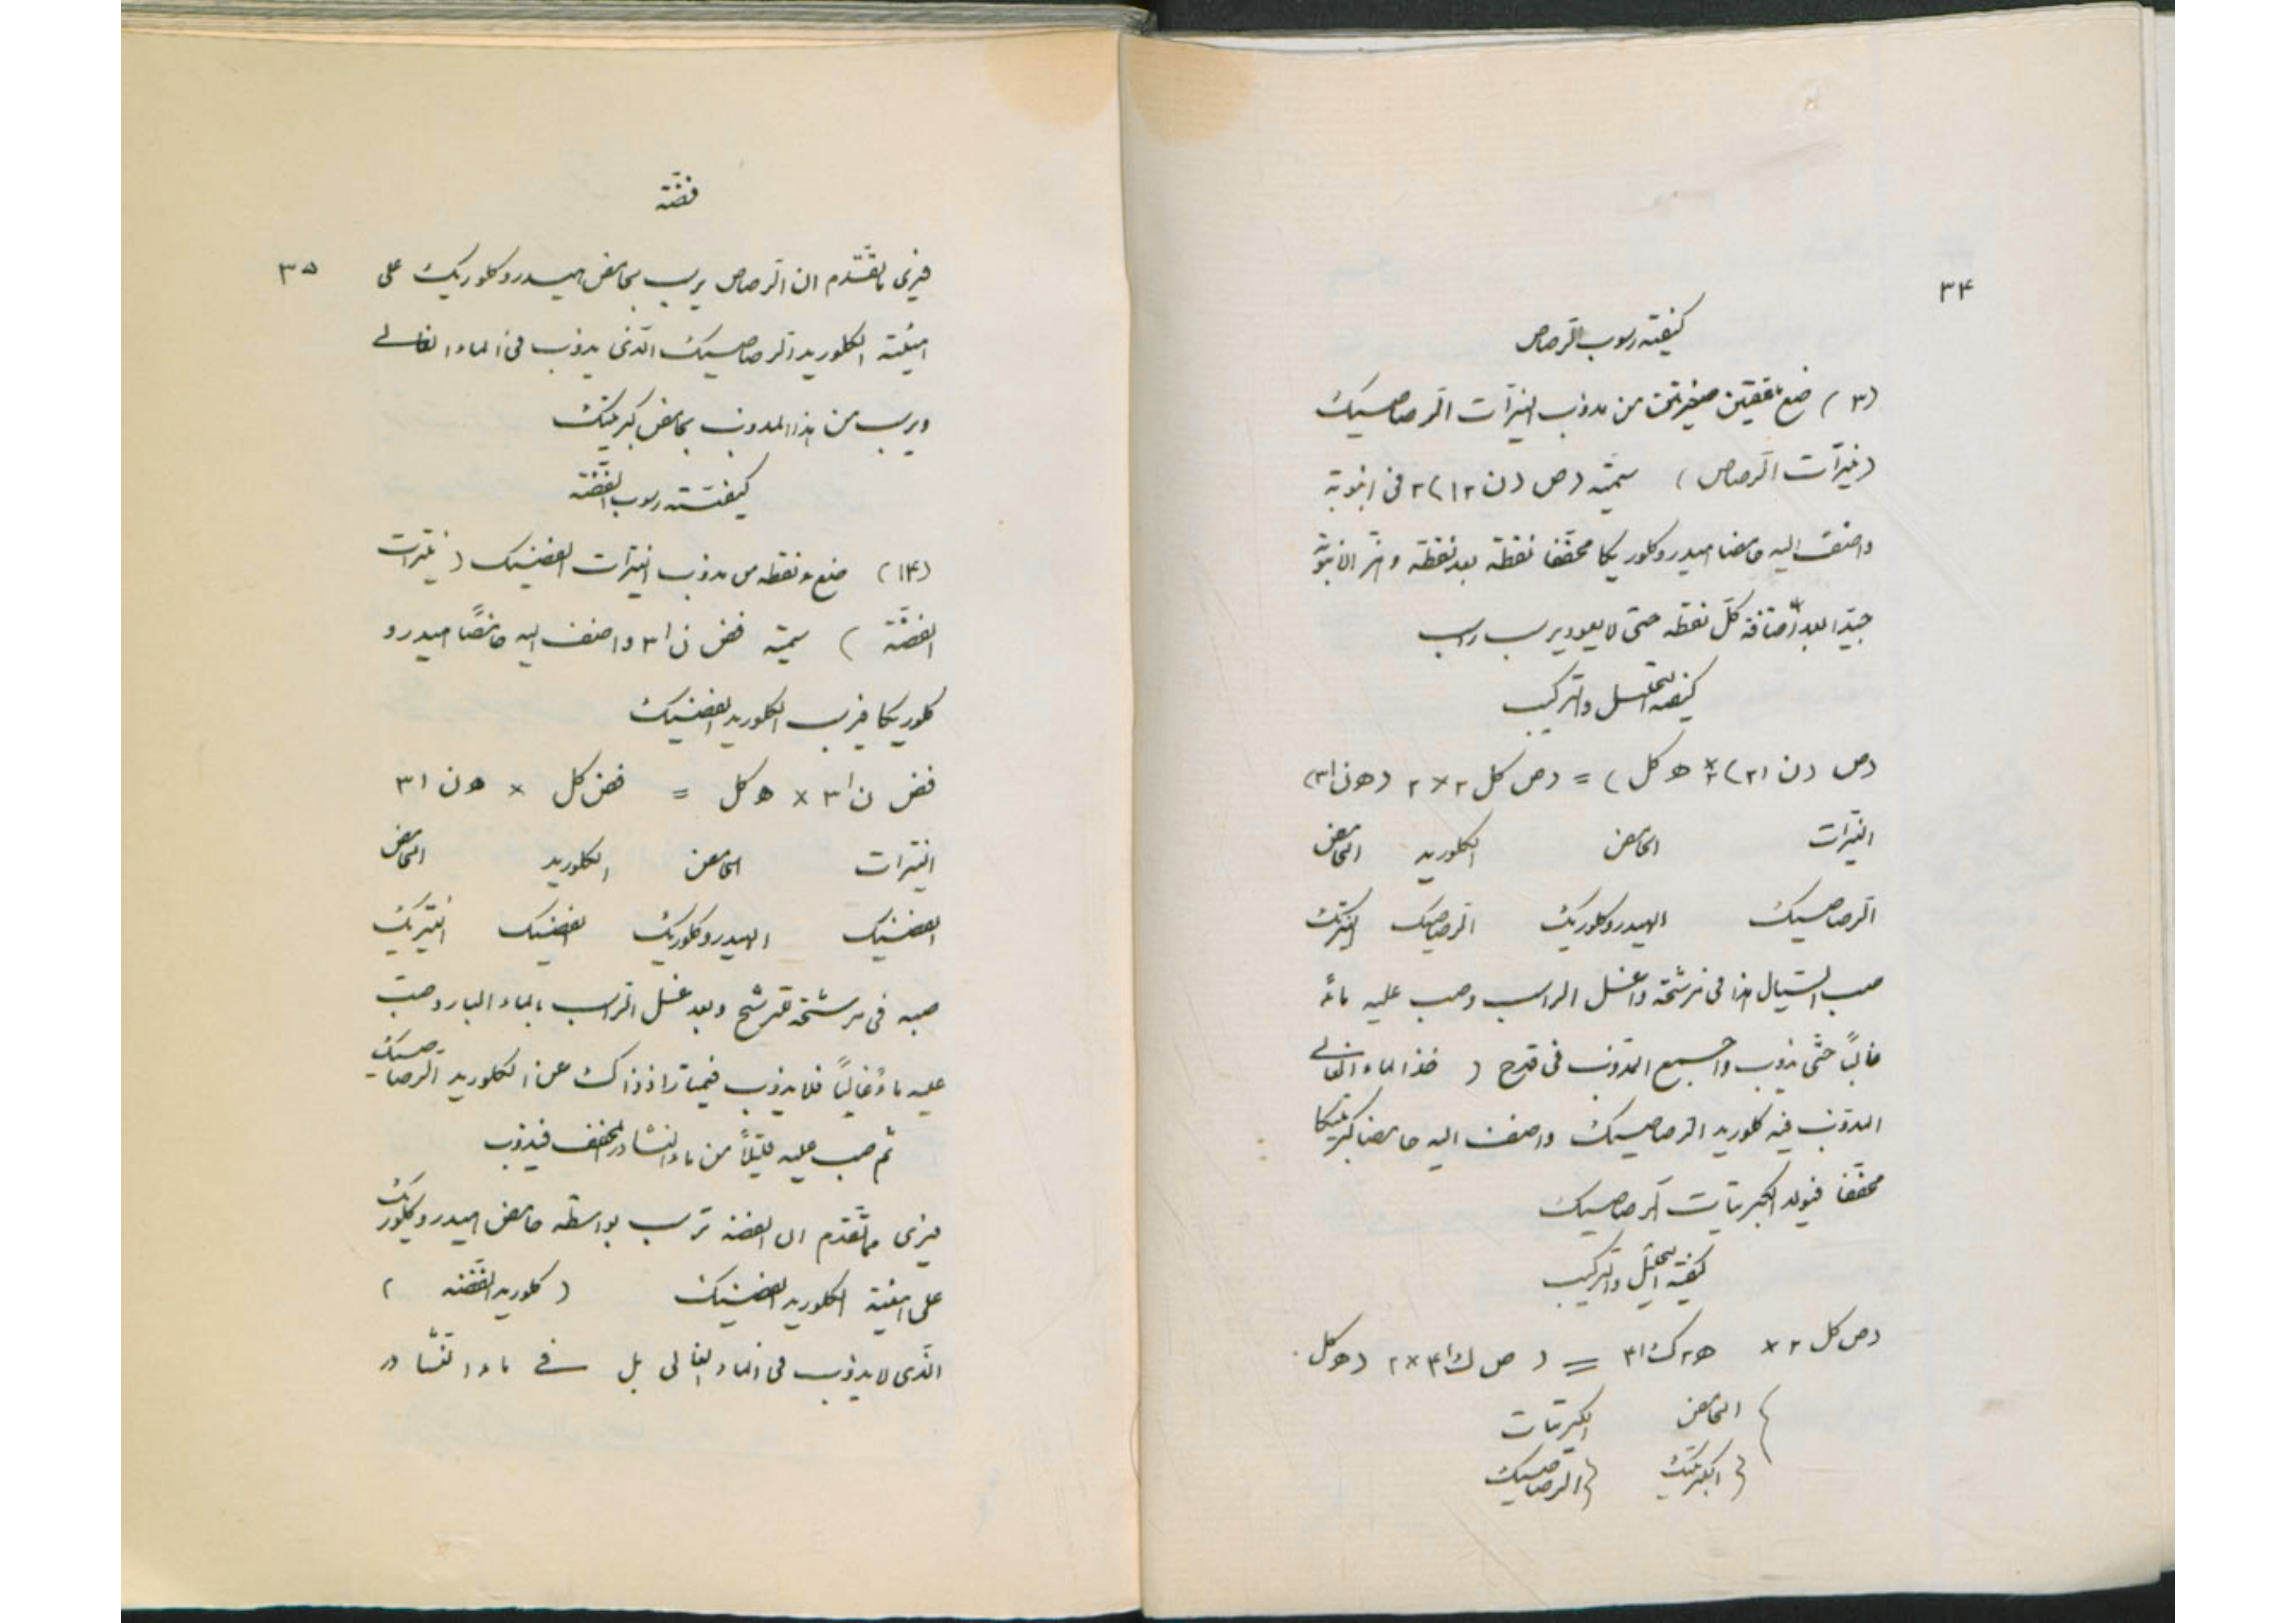 ٣٤
كيفية رسوب الرصاص
(٣) ضع نقطتين صغيرتين من مذوب النيترات الرصاصيك
(نيترات الرصاص) سمته (ص (ن ا٣)٢ في انبوبة
واضف اليه حامضا هيدروكلوريكا مخففا نقطة بعد نقطة وهز الانبوبة
جيدا بعد اضافة كل نقطه حتى لا يعود يرسب راسب
كيفية التحليل والتركيب
رص (ن ا٣)٢ × ٢ (ه كل) = رص كل ٢ × ٢ (ه ن ا٣)
النيترات الحامض الكلوريد الحامض
الرصاصيك الهيدروكلوريك الرصاصيك النيتريك
صب السيال هذا في مرشحة واغسل الراسب وصب عليه ماءً
غالياً حتى يذوب واجمع المذوب في قدح (خذ الماء الغالي
المذوب فيه كلوريد الرصاصيك واضف اليه حامضا كبريتيكا
مخففا فيولد الكبريتات الرصاصيك
كيفية التحليل والتركيب
رص كل ٢ × ه٢ ك ا٤ = رص ك ا٤ × ٢ (ه كل
الحامض الكبريتات
الكبريتيك الرصاصيك
فضة
٣٥
فيرى ما تقدم ان الرصاص يرسب بحامض هيدروكلوريك على
هيئة الكلوريد الرصاصيك الذى يذوب فى الماء الغالي
ويرسب من هذا المذوب بحامض كبريتيك
كيفية رسوب الفضة
(١٤) ضع نقطه من مذوب النيترات الفضيك (نيترات
الفضة) سمته فض ن ا٣ واضف اليه حامضًا هيدرو
كلوريكا فيرسب الكلوريد الفضيك
فض ن ا٣ × ه كل = فض كل × ه ن ا٣
النيترات الحامض الكلوريد الحامض
الفضيك الهيدروكلوريك الفضيك النيتريك
صبه فى مرشحة تترشح وبعد غسل الراسب بالماء البارد صب
عليه ماءً غالياً فلا يذوب فيمتاز اذ ذاك عن الكلوريد الرصاصيك
ثم صب عليه قليلاً من ماء النشادر المخفف فيذوب
فيرى مما تقدم ان الفضة ترسب بواسطه حامض هيدروكلوريك
على هيئة الكلوريد الفضيك (كلوريد الفضه)
الذى لا يذوب فى الماء الغالى بل في ماء النشادر